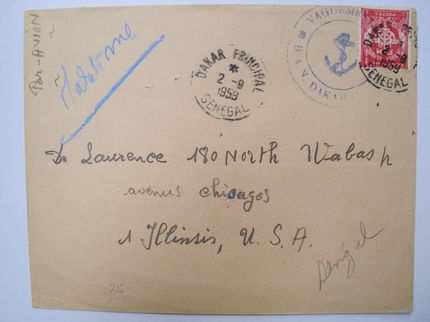 Par-AVION
DAKAR PRINCIPAL
*
2-9
1959
SENEGAL
VAGUEMES
B.A.N. DAKAR
DAKAR PRINC
2-9
1959
SENEGAL
Dr Laurence 180 North Wabash
avenus chicagos
1 Illinois, U.S.A.
Senegal
25-